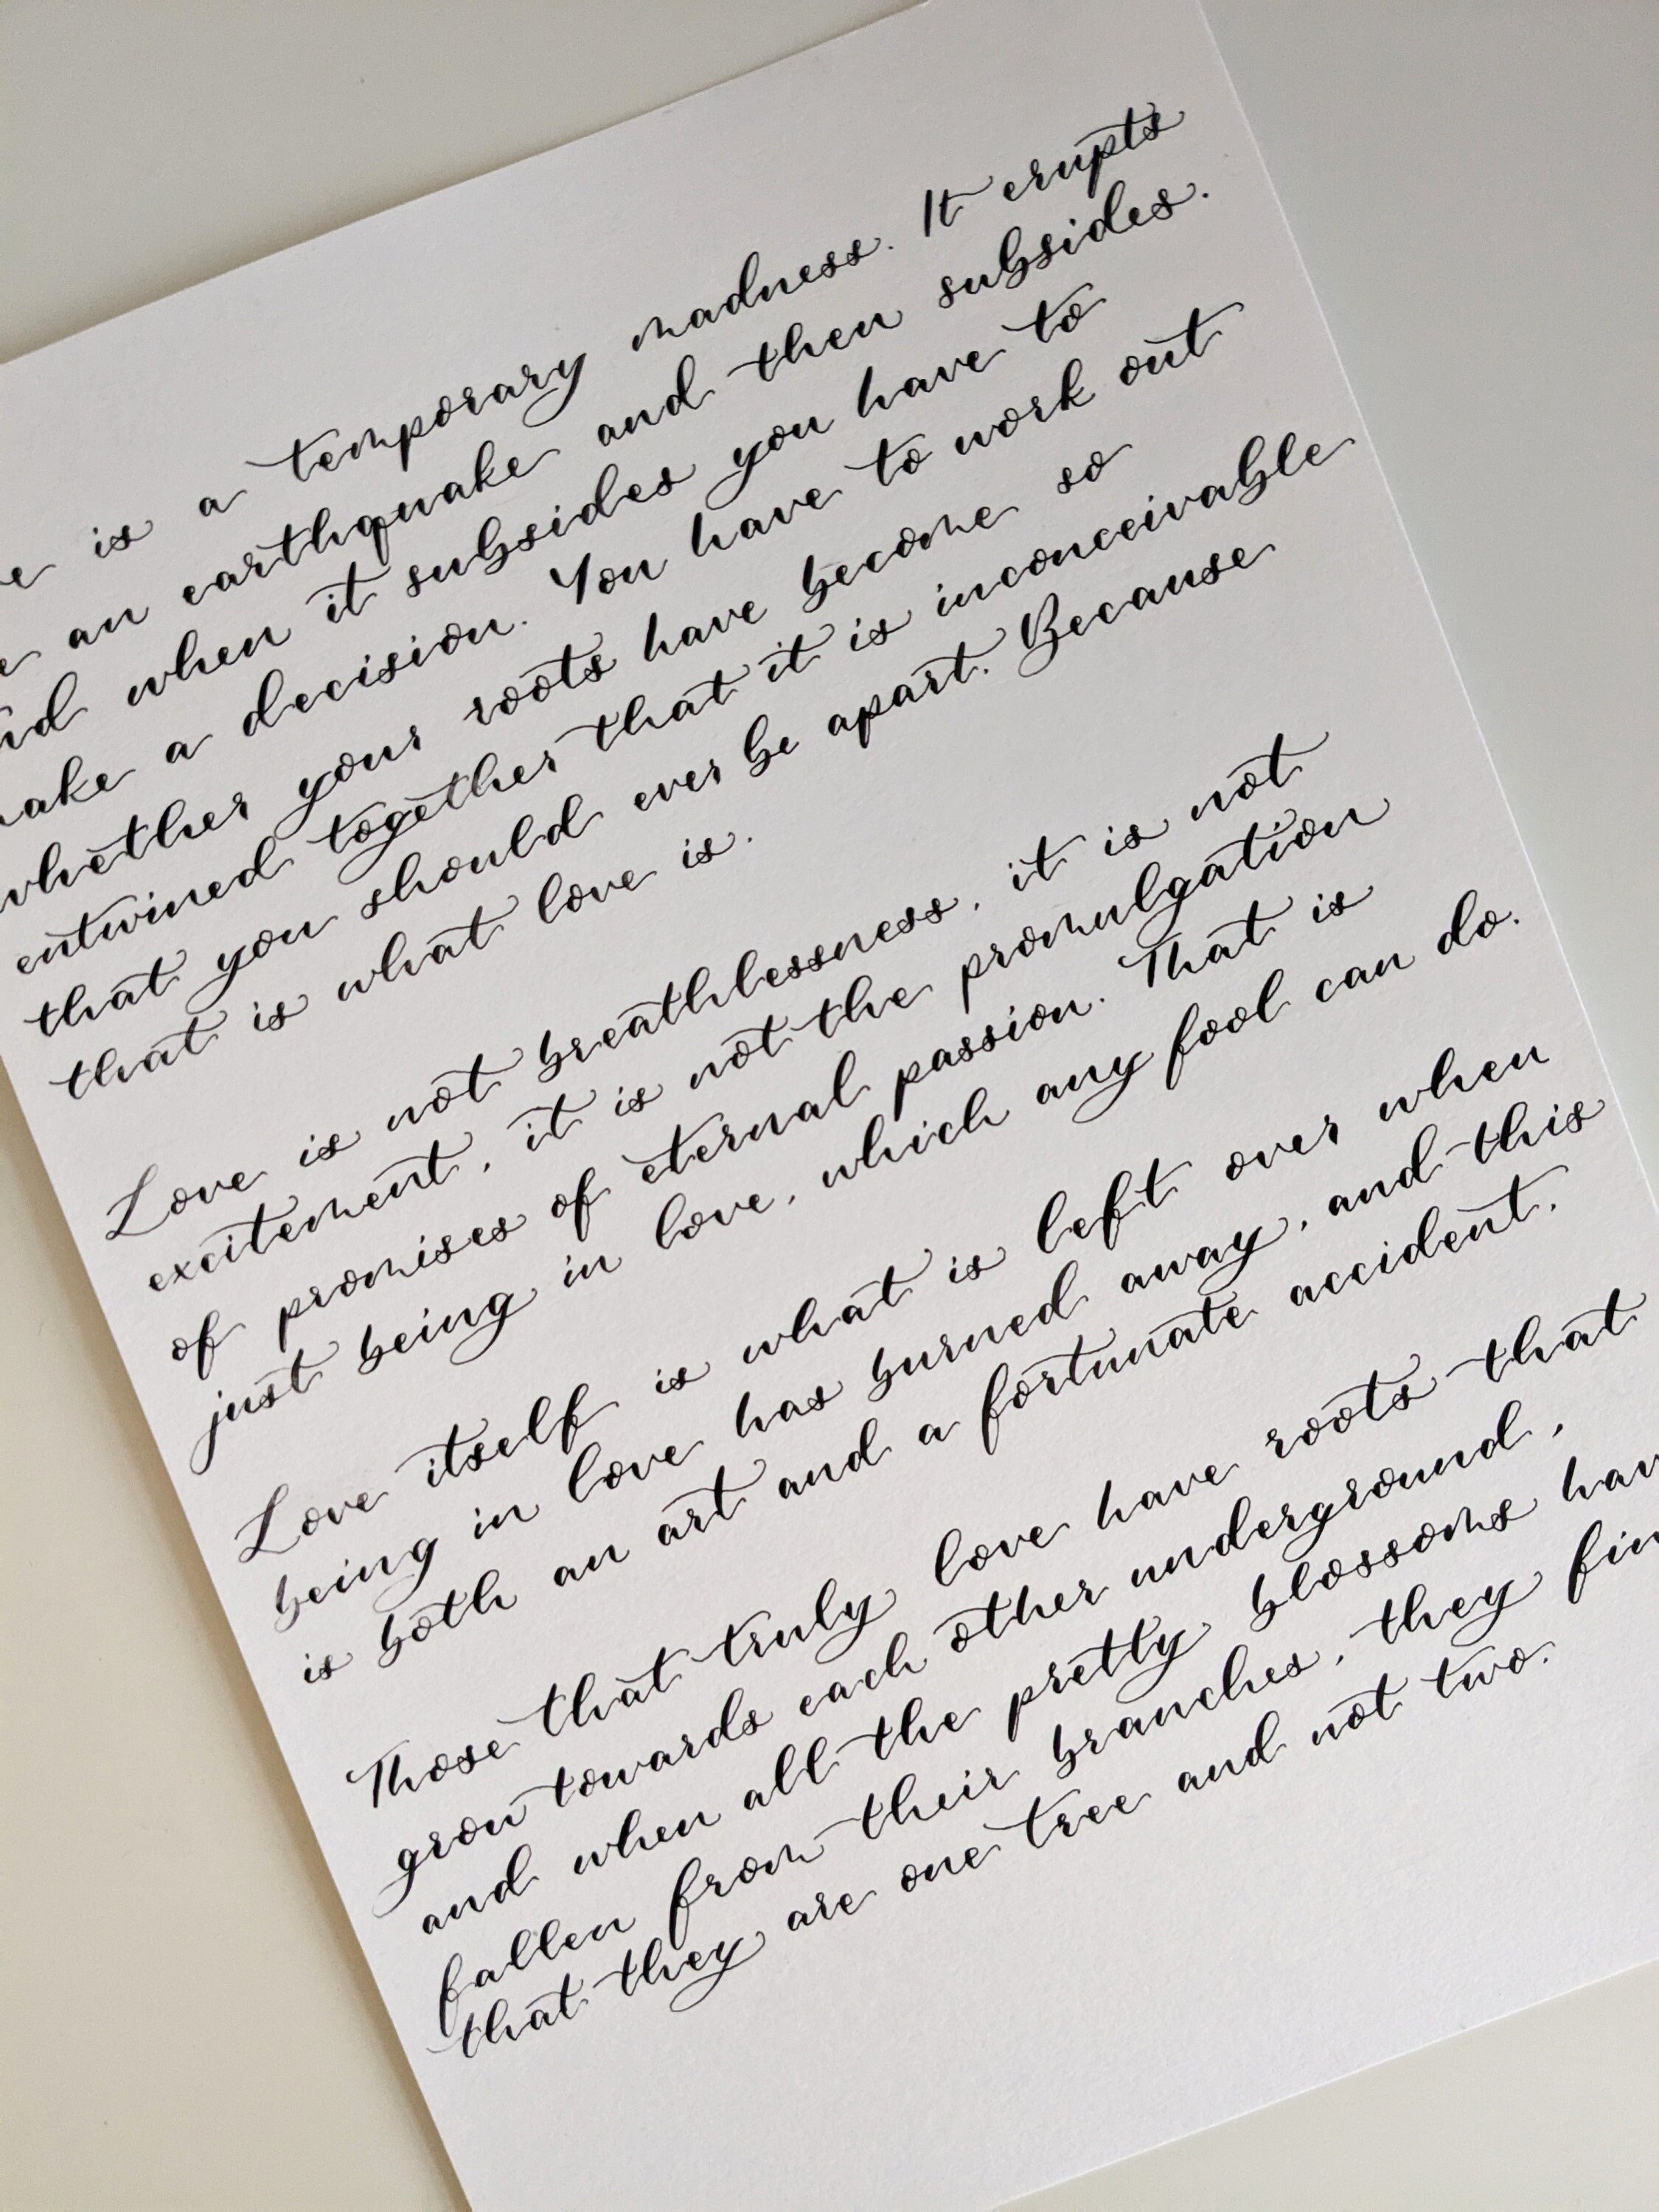 is a temporary madness. It erupts
an earthquake and then subsides.
when it subsides you have to
a decision. You have to work out
whether your roots have become so
entwined together that it is inconceivable
that you should ever be apart. Because
that is what love is.
Love is not breathlessness, it is not
excitement, it is not the promulgation
of promises of eternal passion. That is
just being in love, which any fool can do.
Love itself is what is left over when
being in love has burned away, and this
is both an art and a fortunate accident.
Those that truly love have roots that
grow towards each other underground,
and when all the pretty blossoms hav
fallen from their branches, they fin
that they are one tree and not two.